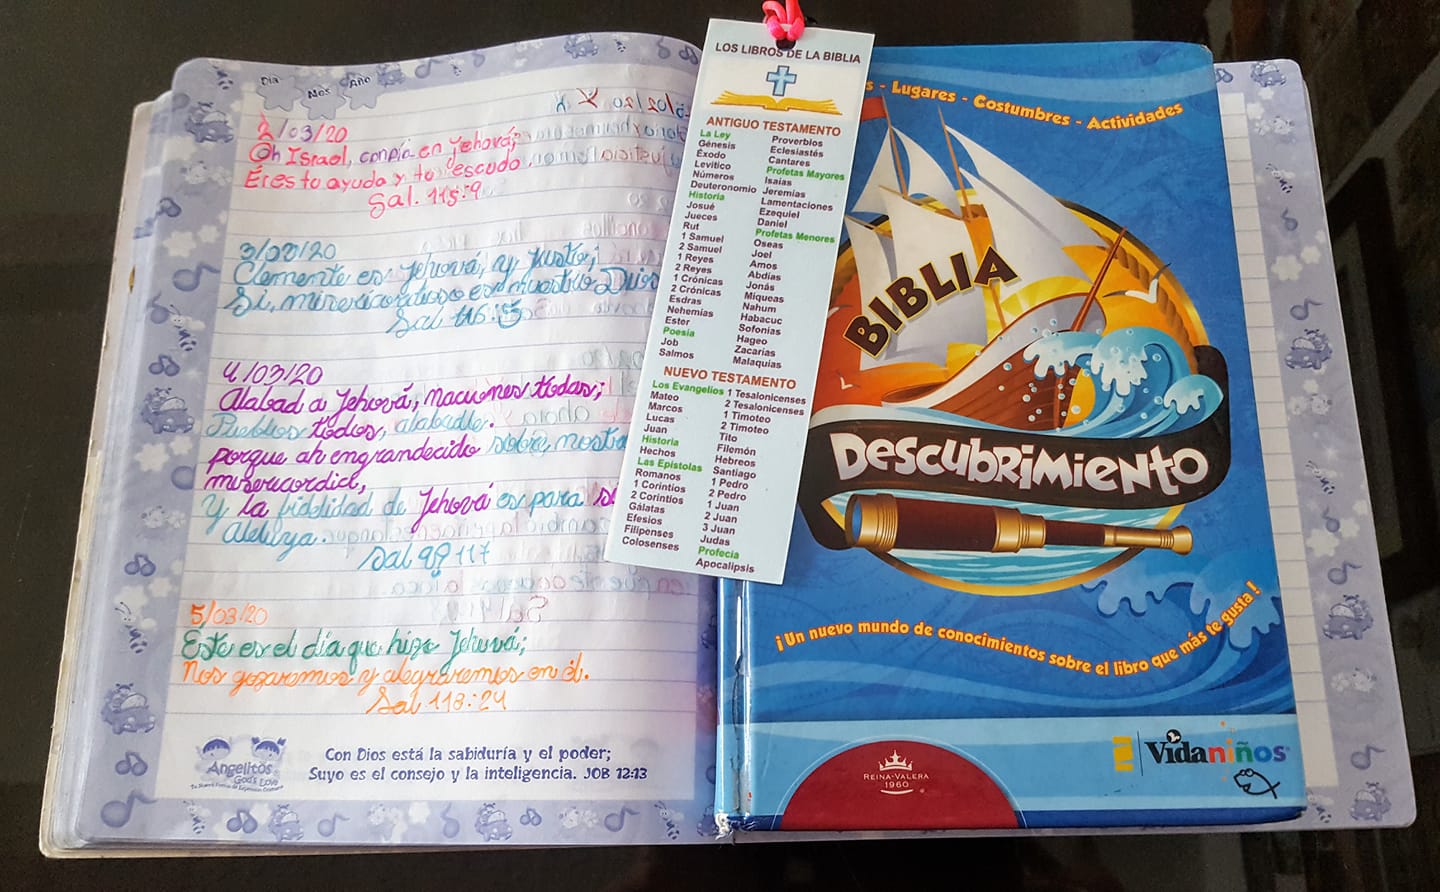 Día Mes Año
2/03/20
Oh Israel, confía en Jehová;
Éres tu ayuda y tu escudo.
Sal. 115:9
3/03/20
Clemente es Jehová, y Justo;
Sí, misericordioso es nuestro Dios
Sal 116:5
4/03/20
Alabad a Jehová, naciones todas;
Pueblos todos, alabadle.
porque ah engrandecido sobre nostra
misericordia,
Y la fidelidad de Jehová es para
Aleluya.
Sal 117
5/03/20
Este es el día que hizo Jehová;
Nos gozaremos y alegraremos en él.
Sal 118:24
Angelitos
God's Love
Con Dios está la sabiduría y el poder;
Suyo es el consejo y la inteligencia. JOB 12:13
LOS LIBROS DE LA BIBLIA
ANTIGUO TESTAMENTO
La Ley
Génesis
Éxodo
Levítico
Números
Deuteronomio
Historia
Josué
Jueces
Rut
1 Samuel
2 Samuel
1 Reyes
2 Reyes
1 Crónicas
2 Crónicas
Esdras
Nehemías
Ester
Poesía
Job
Salmos
Proverbios
Eclesiastés
Cantares
Profetas Mayores
Isaías
Jeremías
Lamentaciones
Ezequiel
Daniel
Profetas Menores
Oseas
Joel
Amos
Abdías
Jonás
Miqueas
Nahum
Habacuc
Sofonías
Hageo
Zacarías
Malaquías
NUEVO TESTAMENTO
Los Evangelios
Mateo
Marcos
Lucas
Juan
Historia
Hechos
Las Epístolas
Romanos
1 Corintios
2 Corintios
Gálatas
Efesios
Filipenses
Colosenses
1 Tesalonicenses
2 Tesalonicenses
1 Timoteo
2 Timoteo
Tito
Filemón
Hebreos
Santiago
1 Pedro
2 Pedro
1 Juan
2 Juan
3 Juan
Judas
Profecía
Apocalipsis
- Lugares - Costumbres - Actividades
BIBLIA
DESCUBRIMIENTO
¡Un nuevo mundo de conocimientos sobre el libro que más te gusta!
REINA-VALERA
1960
Vidaniños